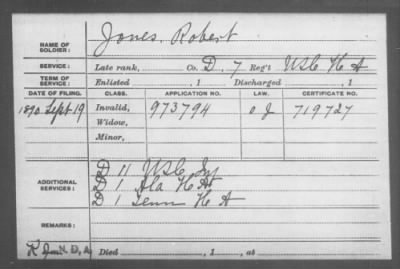 NAME OF SOLDIER: Jones. Robert
SERVICE: Late rank, Co. D. 7 Reg't USC H A
TERM OF SERVICE: Enlisted , 1 Discharged , 1
DATE OF FILING. CLASS. APPLICATION NO. LAW. CERTIFICATE NO.
1890 Sept 19 Invalid, 973794 719727
Widow,
Minor,
D 11 USC Inf
ADDITIONAL SERVICES: D 1 Ala H A
D 1 Tenn H A
REMARKS:
N. D. A.
Died , 1 , at